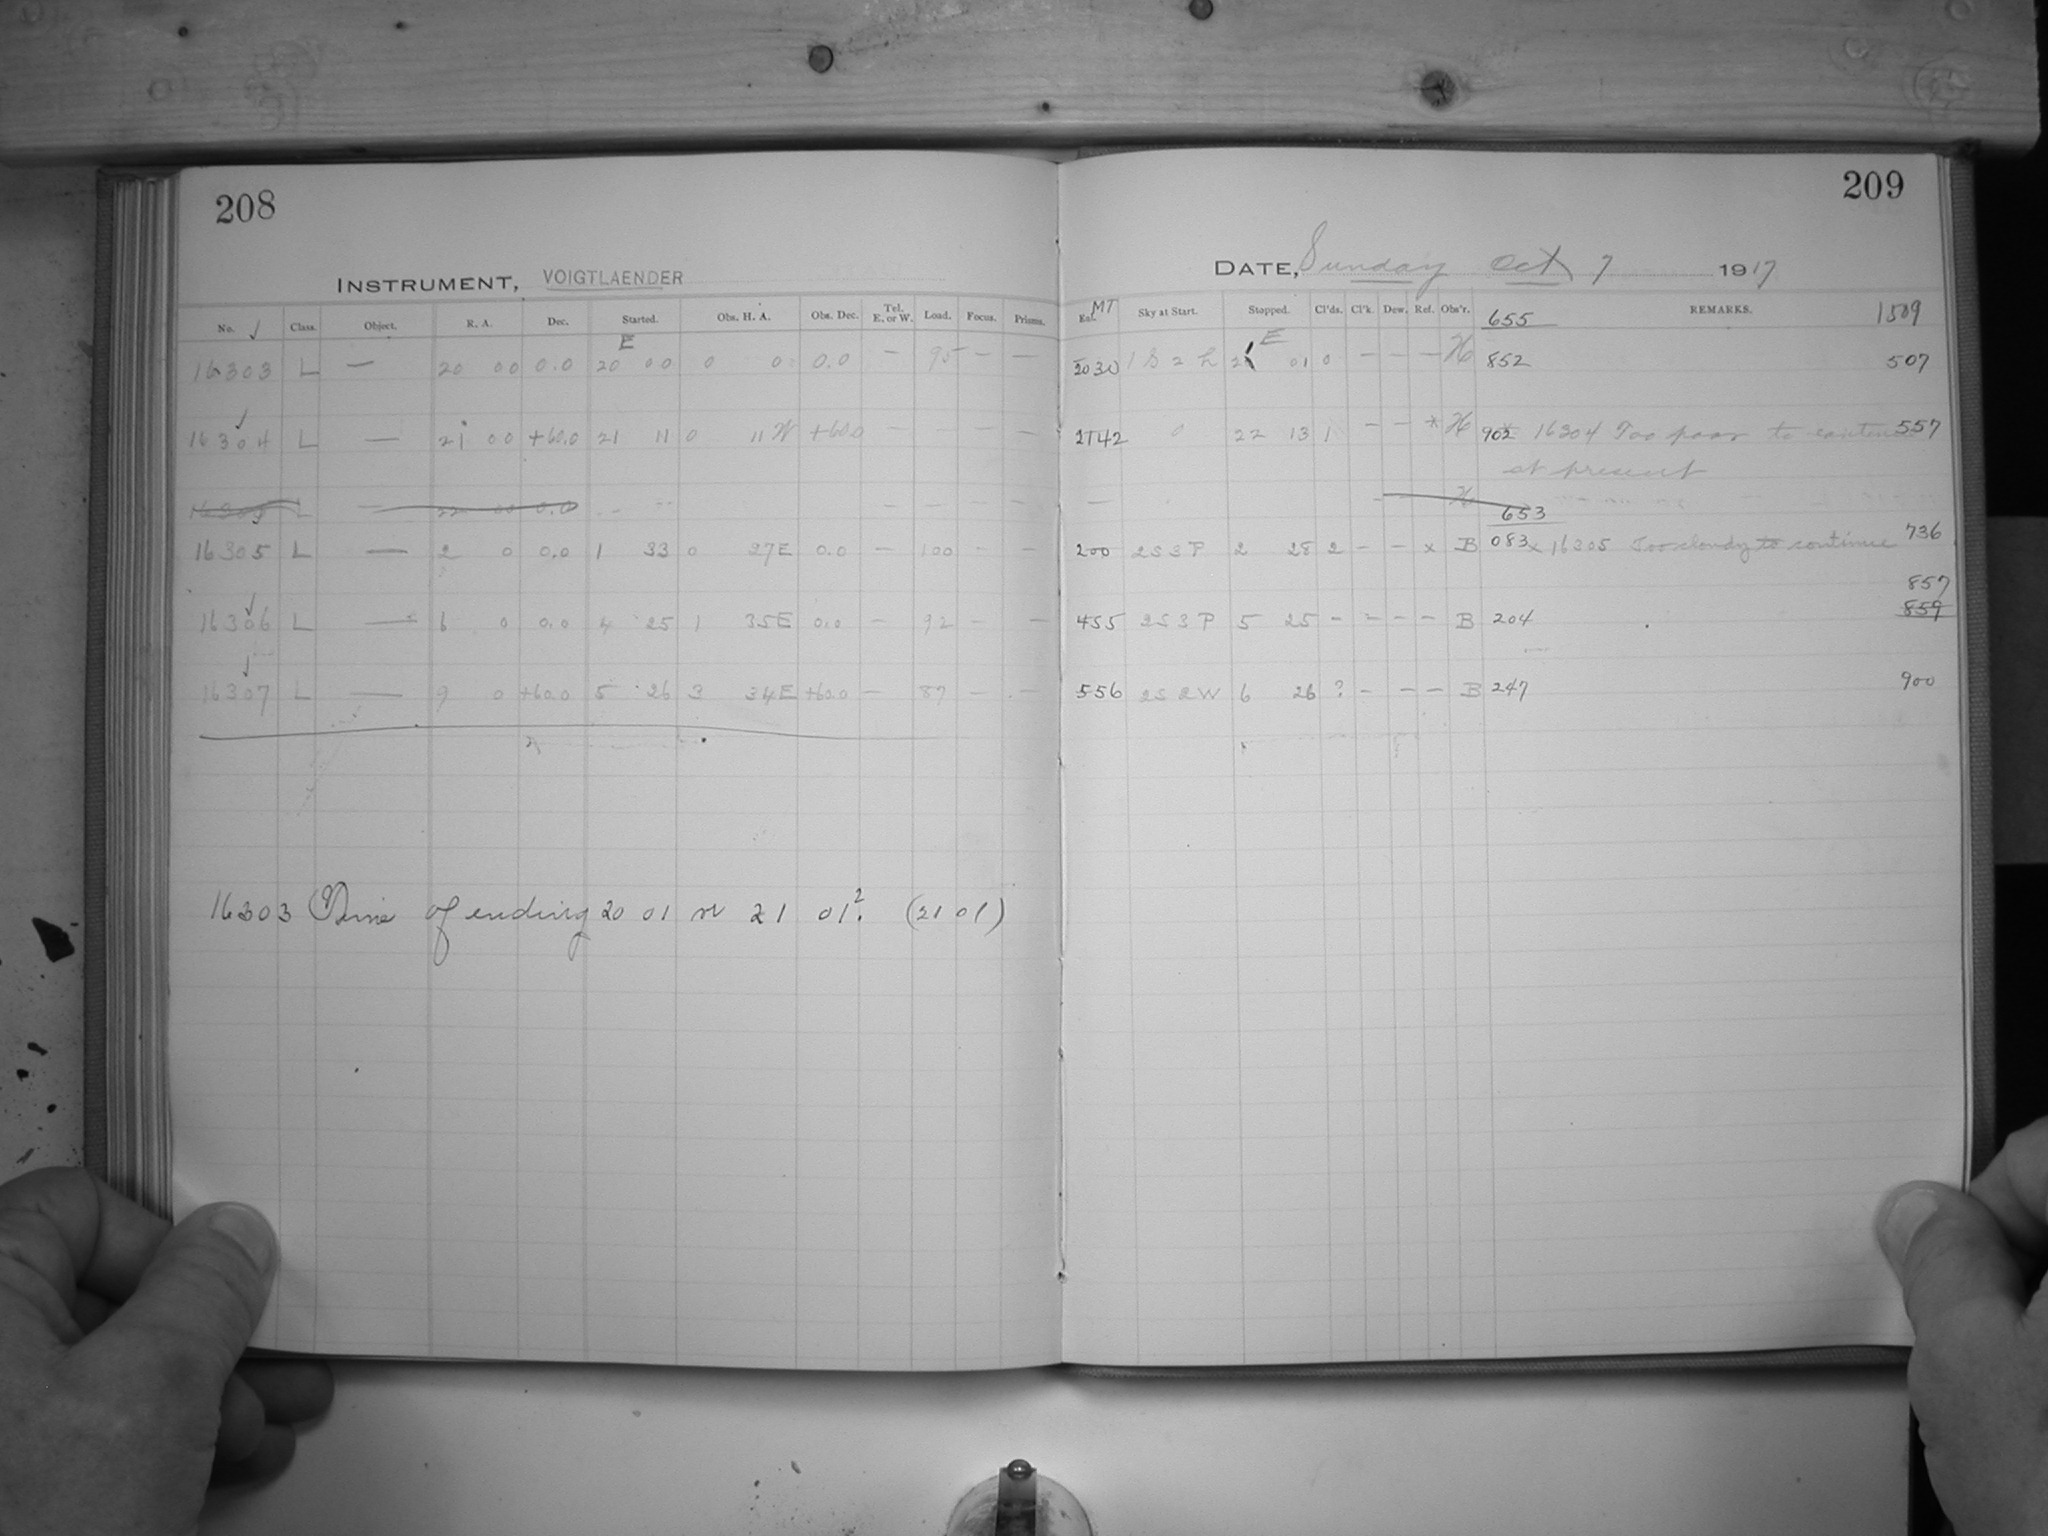 208
209
INSTRUMENT, VOIGTLAENDER
DATE, Sunday Oct 7 1917
No. Class. Object. R. A. Dec. Started. Obs. H. A. Obs. Dec. Tel. E. or W. Load. Focus. Prisms. MT Sky at Start. Stopped. Cl'ds. Cl'k. Dew. Ref. Obs'r. 655 REMARKS. 1509
E E
16303 L — 20 00 0.0 20 00 0 0 0.0 — 95 — — 2030 1 S 2 L 21 01 0 — — — H 852 507
16304 L — 21 00 +60.0 21 11 0 11 W +60.0 — — — — 2142 0 22 13 1 — — * H 902 16304 Too poor to continue 557
at present
16305 L — 22 00 0.0
653
16305 L — 2 0 0.0 1 33 0 27E 0.0 — 100 — — 200 2S3P 2 28 2 — — x B 083 x 16305 Too cloudy to continue 736
857
16306 L — 6 0 0.0 4 25 1 35E 0.0 — 92 — — 455 2S3P 5 25 — — — — B 204 859
16307 L — 9 0 +60.0 5 26 3 34E +60.0 — 87 — — 556 2S2W 6 26 ? — — — B 247 900
16303 Time of ending 20 01 or 21 01? (21 01)